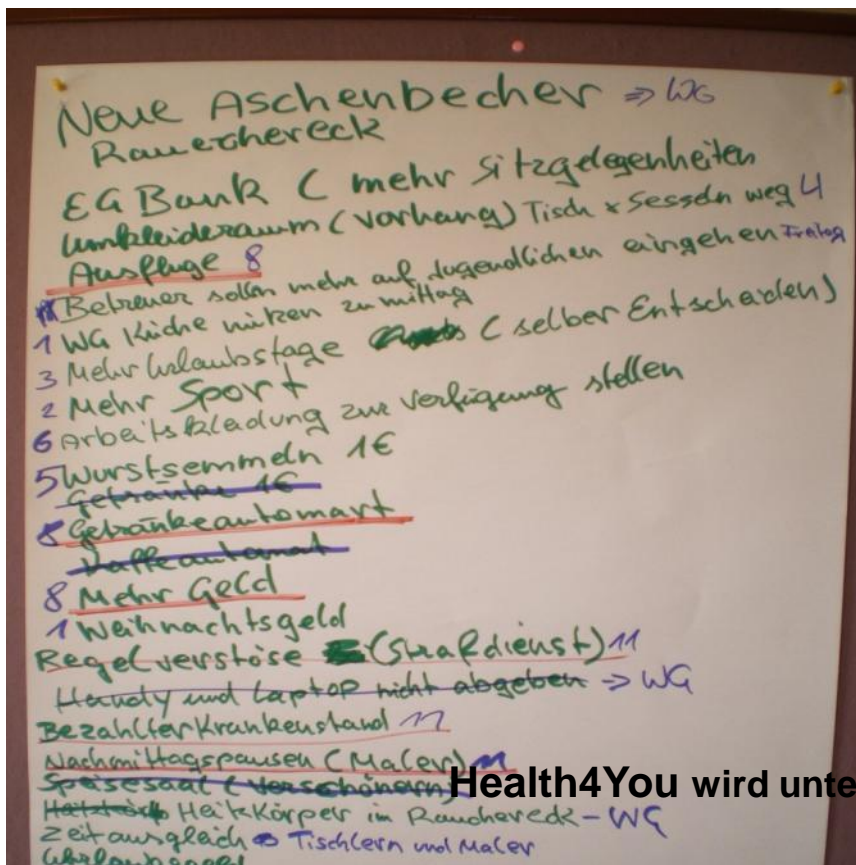 Neue Aschenbecher => WG
Rauchereck
EG Bank ( mehr Sitzgelegenheiten
Umkleideraum (Vorhang) Tisch + Sesseln weg 4
Ausfluge 8
Betreuer sollen mehr auf Jugendlichen eingehen Freitag
1 WG Küche nützen zu mittag
3 Mehr Urlaubstage (selber Entscheiden)
2 Mehr Sport
6 Arbeitskleidung zur Verfügung stellen
5 Wurstsemmeln 1€
Getränke 1€
Getränkeautomart
Kaffeautomat
8 Mehr Geld
1 Weihnachtsgeld
Regelverstöse (Strafdienst) 11
Handy und Laptop nicht abgeben -> WG
Bezahlter Krankenstand 11
Nachmittagspausen (Maler) 11
Speisesaal (verschönern)
Heitzkörper im Rauchereck - WG
Zeitausgleich Tischlern und Maler
Urlaubsgeld
Health4You wird unte